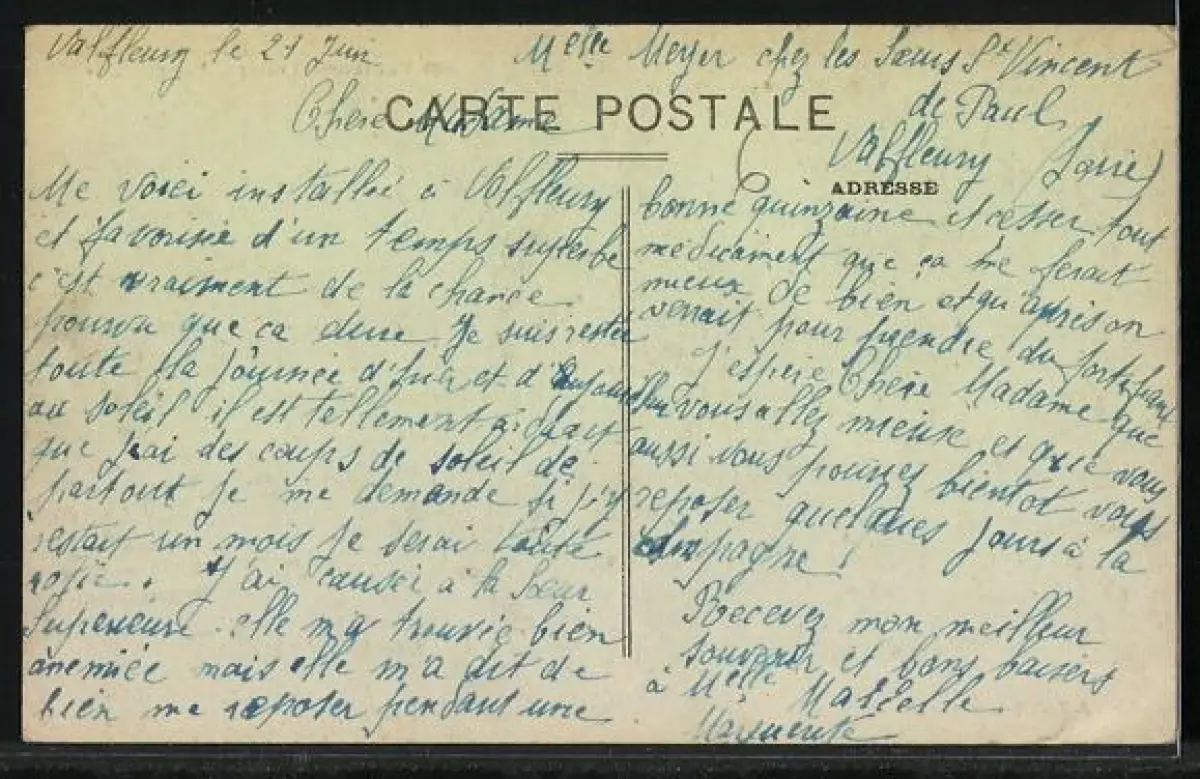 Valfleury le 21 Juin
Melle Meyer chez les Sœurs St Vincent
de Paul
Valfleury (Loire)
CARTE POSTALE
ADRESSE
Chère Madame
Me voici installée à Valfleury
et favorisée d'un temps superbe
c'est vraiment de la chance
pourvu que ca dure Je suis restée
toute la journée d'hier et d'aujourd'hui
au soleil il est tellement
que j'ai des coups de soleil de
partout je me demande si j'y
restait un mois je serai toute
rotie. J'ai causée à la Sœur
Superieure elle m'a trouvée bien
anemiée mais elle m'a dit de
bien me reposer pendant une
bonne quinzaine et cesser tout
medicament que ça me ferait
mieux de bien et qu'après on
verrait pour prendre du fortifiant
J'espère Chère Madame que
vous allez mieux et que vous
aussi vous pourrez bientot vous
reposer quelques jours à la
campagne!
Recevez mon meilleur
souvenir et bons baisers
à Melle Marcelle
Marguerite